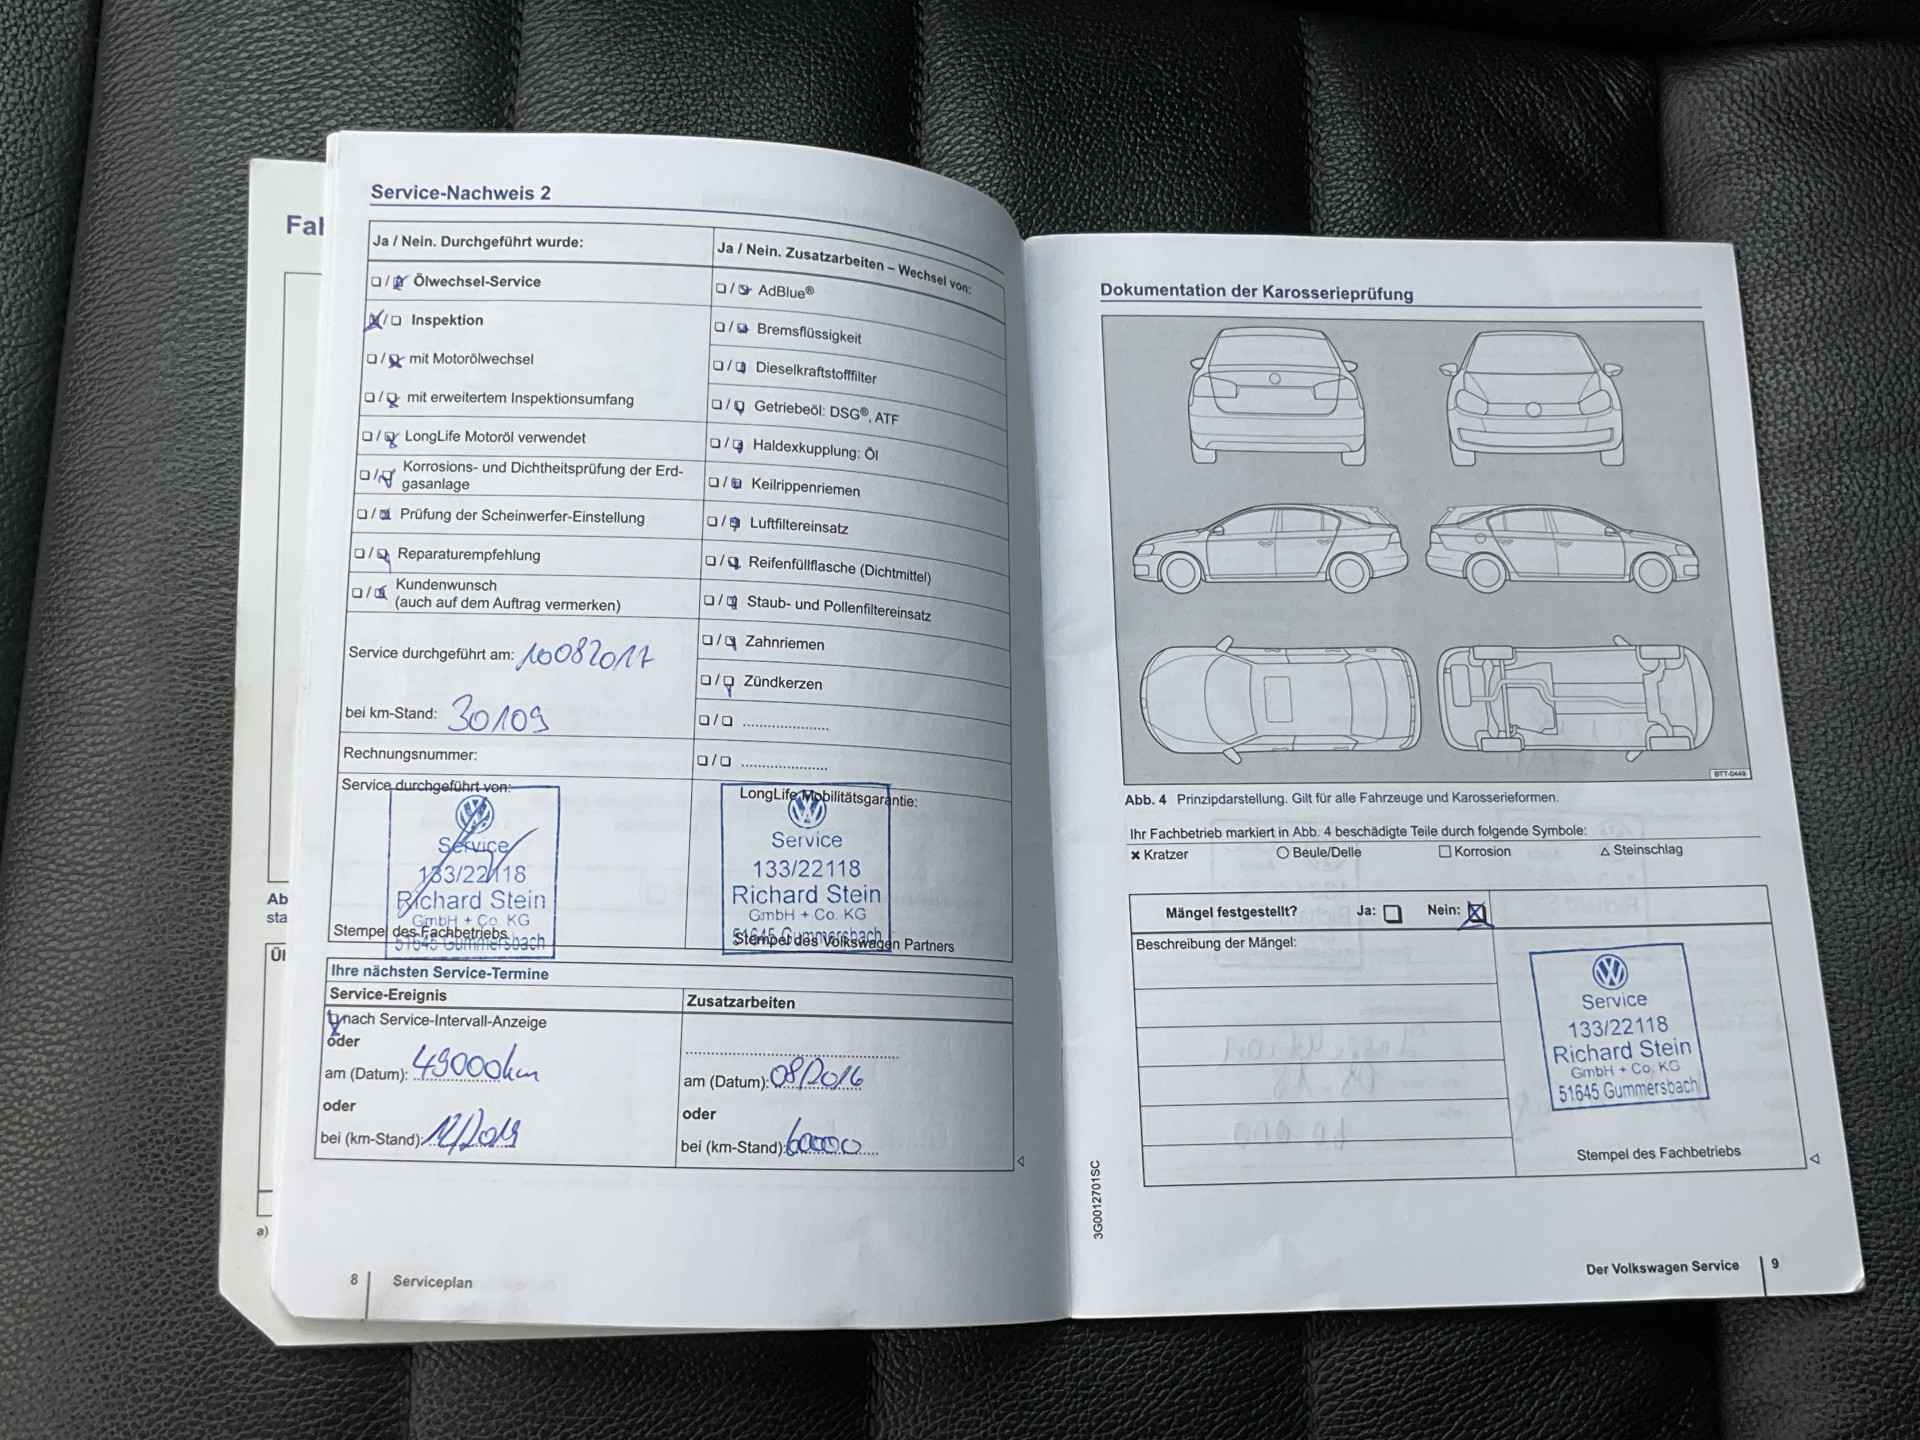 Fah
Ab
sta
Üb
a)
Service-Nachweis 2
Ja / Nein. Durchgeführt wurde:
❑ / ❑ Ölwechsel-Service
❑ / ❑ Inspektion
❑ / ❑ mit Motorölwechsel
❑ / ❑ mit erweitertem Inspektionsumfang
❑ / ❑ LongLife Motoröl verwendet
❑ / ❑ Korrosions- und Dichtheitsprüfung der Erd-
gasanlage
❑ / ❑ Prüfung der Scheinwerfer-Einstellung
❑ / ❑ Reparaturempfehlung
❑ / ❑ Kundenwunsch
(auch auf dem Auftrag vermerken)
Service durchgeführt am: 10082017
bei km-Stand: 30109
Rechnungsnummer:
Service durchgeführt von:
Service
133/22118
Richard Stein
GmbH + Co. KG
51645 Gummersbach
Stempel des Fachbetriebs
Ja / Nein. Zusatzarbeiten – Wechsel von:
❑ / ❑ AdBlue®
❑ / ❑ Bremsflüssigkeit
❑ / ❑ Dieselkraftstofffilter
❑ / ❑ Getriebeöl: DSG®, ATF
❑ / ❑ Haldexkupplung: Öl
❑ / ❑ Keilrippenriemen
❑ / ❑ Luftfiltereinsatz
❑ / ❑ Reifenfüllflasche (Dichtmittel)
❑ / ❑ Staub- und Pollenfiltereinsatz
❑ / ❑ Zahnriemen
❑ / ❑ Zündkerzen
❑ / ❑ ......................
❑ / ❑ ......................
LongLife Mobilitätsgarantie:
Service
133/22118
Richard Stein
GmbH + Co. KG
51645 Gummersbach
Stempel des Volkswagen Partners
Ihre nächsten Service-Termine
Service-Ereignis
❑ nach Service-Intervall-Anzeige
oder
am (Datum): 49000km
oder
bei (km-Stand): 12/2019
Zusatzarbeiten
am (Datum): 08/2016
oder
bei (km-Stand): 60000
8
Serviceplan
Dokumentation der Karosserieprüfung
BTT-0449
Abb. 4 Prinzipdarstellung. Gilt für alle Fahrzeuge und Karosserieformen.
Ihr Fachbetrieb markiert in Abb. 4 beschädigte Teile durch folgende Symbole:
✖ Kratzer ○ Beule/Delle □ Korrosion △ Steinschlag
Mängel festgestellt? Ja: ❑ Nein: ☒
Beschreibung der Mängel:
Service
133/22118
Richard Stein
GmbH + Co. KG
51645 Gummersbach
Stempel des Fachbetriebs
3G0012701SC
Der Volkswagen Service
9